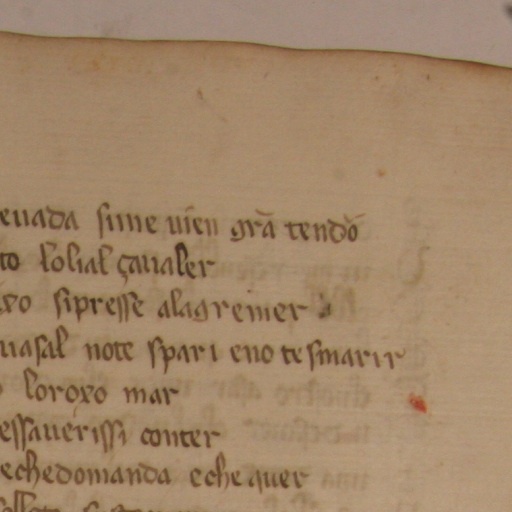 euada sime uien grã tendõ
to lolial çaualer
sipresse alagremer
uasal note spari eno tesmarir
loroxo mar
essauerissi conter
echedomanda eche quer